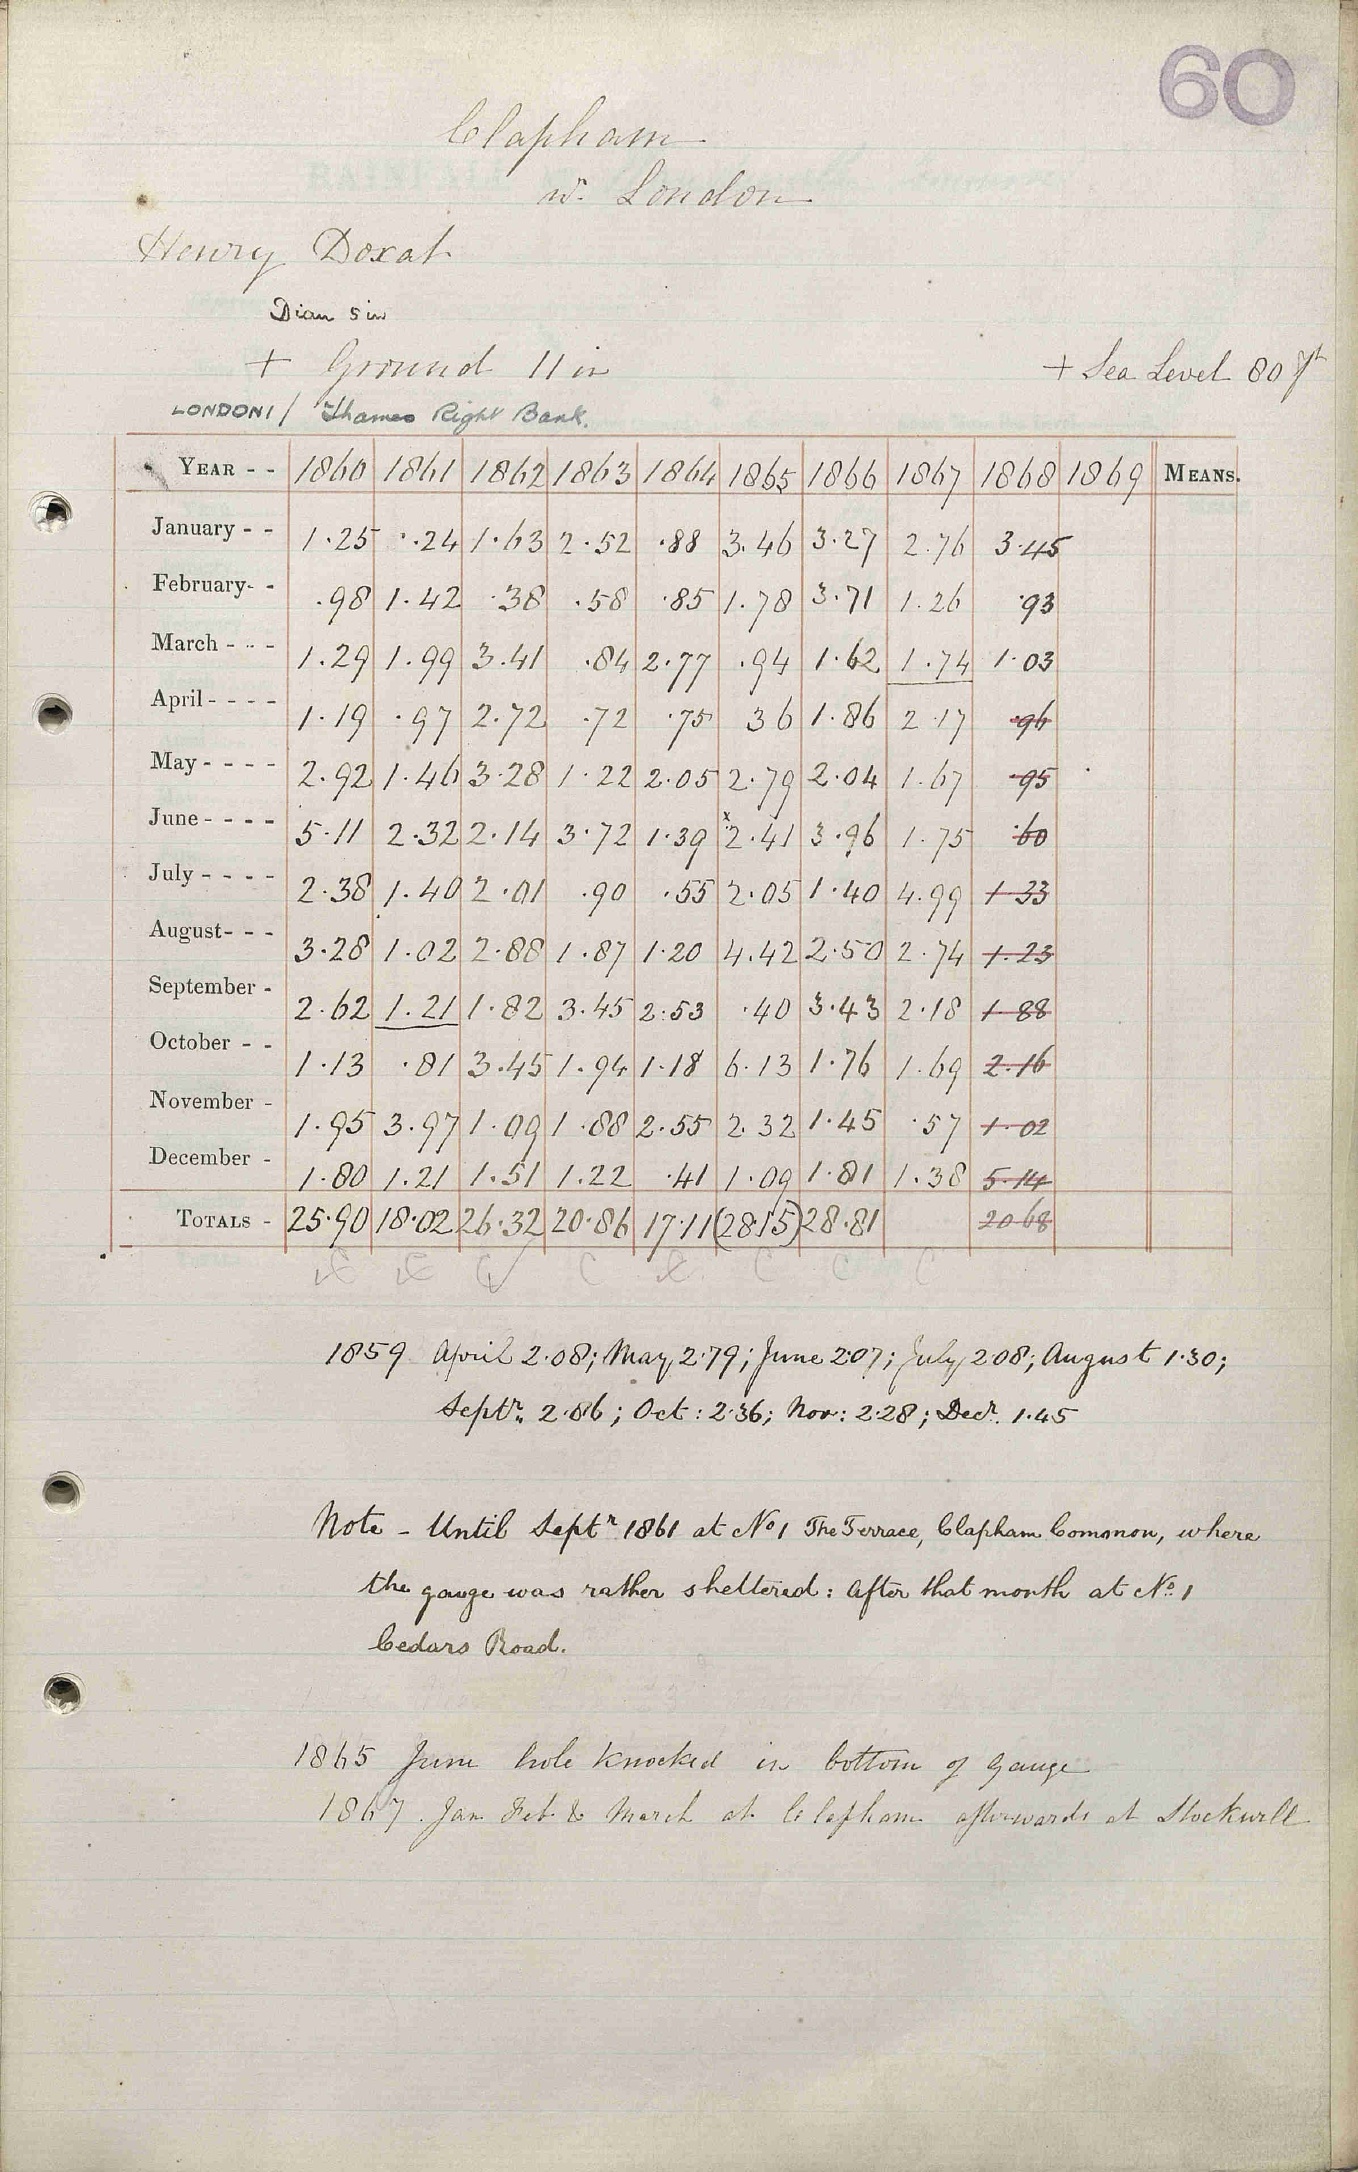 60
Clapham
nr. London
Henry Doxat
Diam 5 in
+ Ground 11 in
+ Sea Level 80 ft
LONDON 1/ Thames Right Bank.
YEAR - - 1860 1861 1862 1863 1864 1865 1866 1867 1868 1869 MEANS.
January - - 1.25 .24 1.63 2.52 .88 3.46 3.27 2.76 3.45
February- - .98 1.42 .38 .58 .85 1.78 3.71 1.26 .93
March - - - 1.29 1.99 3.41 .84 2.77 .94 1.62 1.74 1.03
April - - - - 1.19 .97 2.72 .72 .75 36 1.86 2.17 .96
May - - - - 2.92 1.46 3.28 1.22 2.05 2.79 2.04 1.67 .95
June - - - - 5.11 2.32 2.14 3.72 1.39 x2.41 3.96 1.75 .60
July - - - - 2.38 1.40 2.01 .90 .55 2.05 1.40 4.99 1.33
August- - - 3.28 1.02 2.88 1.87 1.20 4.42 2.50 2.74 1.23
September - 2.62 1.21 1.82 3.45 2.53 .40 3.43 2.18 1.88
October - - 1.13 .81 3.45 1.94 1.18 6.13 1.76 1.69 2.16
November - 1.95 3.97 1.09 1.88 2.55 2.32 1.45 .57 1.02
December - 1.80 1.21 1.51 1.22 .41 1.09 1.81 1.38 5.14
TOTALS - 25.90 18.02 26.32 20.86 17.11 (28.15) 28.81 20.68
1859 April 2.08; May 2.79; June 2.07; July 2.08; August 1.30;
Septr. 2.86; Oct: 2.36; Nov: 2.28; Decr. 1.45
Note - Until Septr 1861 at No 1 The Terrace, Clapham Common, where
the gauge was rather sheltered: after that month at No. 1
Cedars Road.
1865 June hole knocked in bottom of gauge
1867. Jan Feb & March at Clapham afterwards at Stockwell